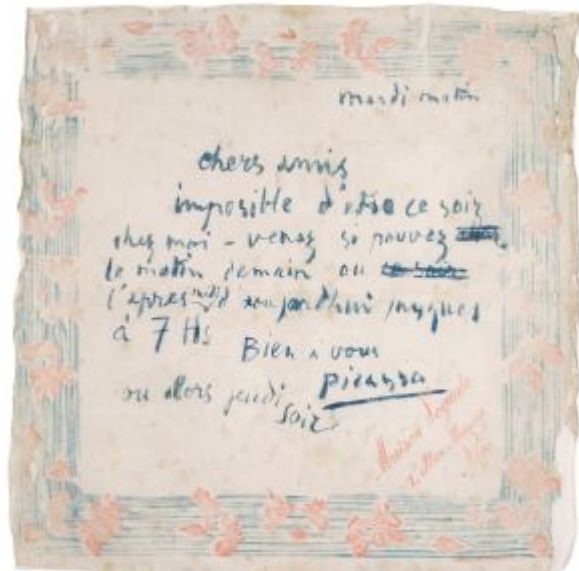 mardi matin
chers amis
imposible d'etre ce soir
chez moi - venez si pouvez
le matin demain ou
l'apres midi d'aujourdhui jusques
à 7 Hs
Bien a vous
ou alors jeudi Picasso
soir
Maison